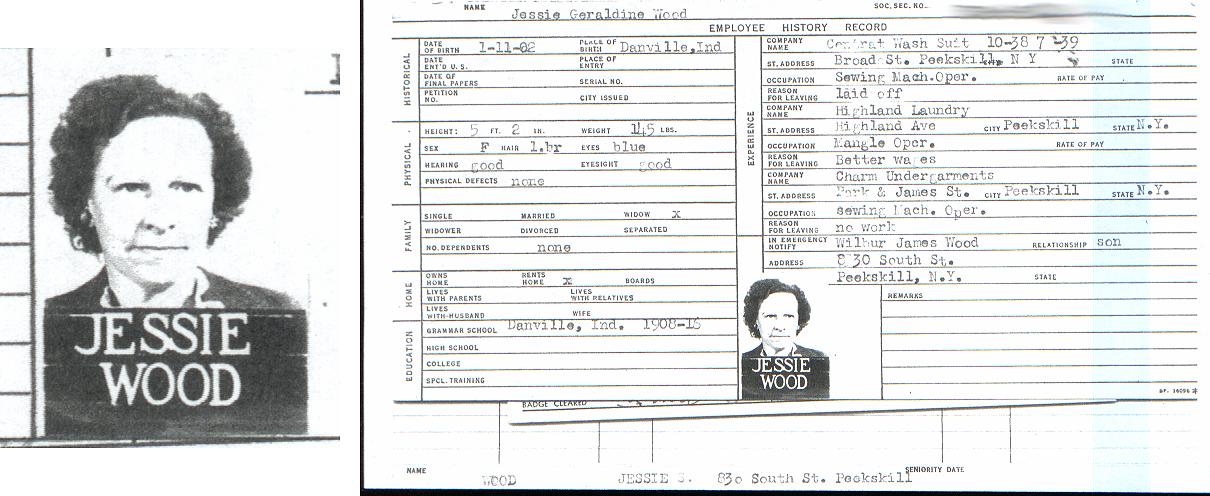 JESSIE
WOOD
NAME Jessie Geraldine Wood SOC. SEC. NO.
EMPLOYEE HISTORY RECORD
HISTORICAL
DATE OF BIRTH 1-11-02 PLACE OF BIRTH Danville, Ind
DATE ENT'D U.S. PLACE OF ENTRY
DATE OF FINAL PAPERS SERIAL NO.
PETITION NO. CITY ISSUED
PHYSICAL
HEIGHT: 5 FT. 2 IN. WEIGHT 145 LBS.
SEX F HAIR l.br EYES blue
HEARING good EYESIGHT good
PHYSICAL DEFECTS none
FAMILY
SINGLE MARRIED WIDOW x
WIDOWER DIVORCED SEPARATED
NO. DEPENDENTS none
HOME
OWNS HOME RENTS HOME x BOARDS
LIVES WITH PARENTS LIVES WITH RELATIVES
LIVES WITH HUSBAND WIFE
EDUCATION
GRAMMAR SCHOOL Danville, Ind. 1908-16
HIGH SCHOOL
COLLEGE
SPCL. TRAINING
EXPERIENCE
COMPANY NAME Wash Suit 10-38 7-39
ST. ADDRESS Broad St. Peekskill, N Y STATE
OCCUPATION Sewing Mach.Oper. RATE OF PAY
REASON FOR LEAVING laid off
COMPANY NAME Highland Laundry
ST. ADDRESS Highland Ave CITY Peekskill STATE N.Y.
OCCUPATION Mangle Oper. RATE OF PAY
REASON FOR LEAVING Better wages
COMPANY NAME Charm Undergarments
ST. ADDRESS Park & James St. CITY Peekskill STATE N.Y.
OCCUPATION sewing Mach. Oper.
REASON FOR LEAVING no work
IN EMERGENCY NOTIFY Wilbur James Wood RELATIONSHIP son
ADDRESS 830 South St.
Peekskill, N.Y. STATE
JESSIE
WOOD
REMARKS
BADGE CLEARED
NAME WOOD JESSIE S. 830 South St. Peekskill SENIORITY DATE